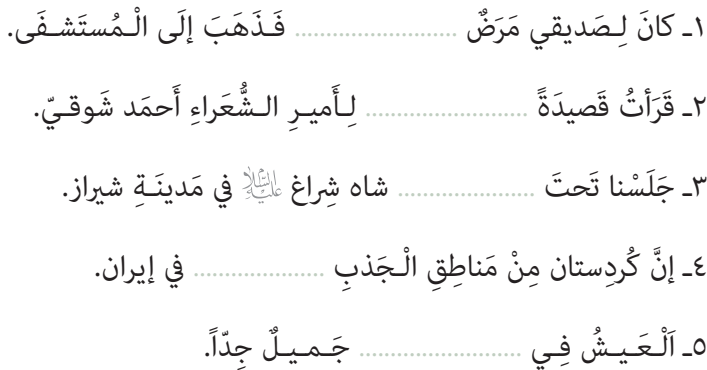 ١ـ كانَ لِـصَديقي مَرَضٌ ........................ فَـذَهَبَ إلَى الْـمُستَشـفَى.
٢ـ قَرَأتُ قَصيدَةً ........................ لِـأَميـرِ الـشُّعَراءِ أَحمَد شَوقـيّ.
٣ـ جَلَسْنا تَحتَ .................... شاه شِراغ عليه‌السلام في مَدينَـةِ شيراز.
٤ـ إنَّ كُردِستان مِنْ مَناطِقِ الْـجَذبِ ................... في إيران.
٥ـ اَلْـعَـيـشُ فِـي ........................ جَـمـيـلٌ جِدّاً.